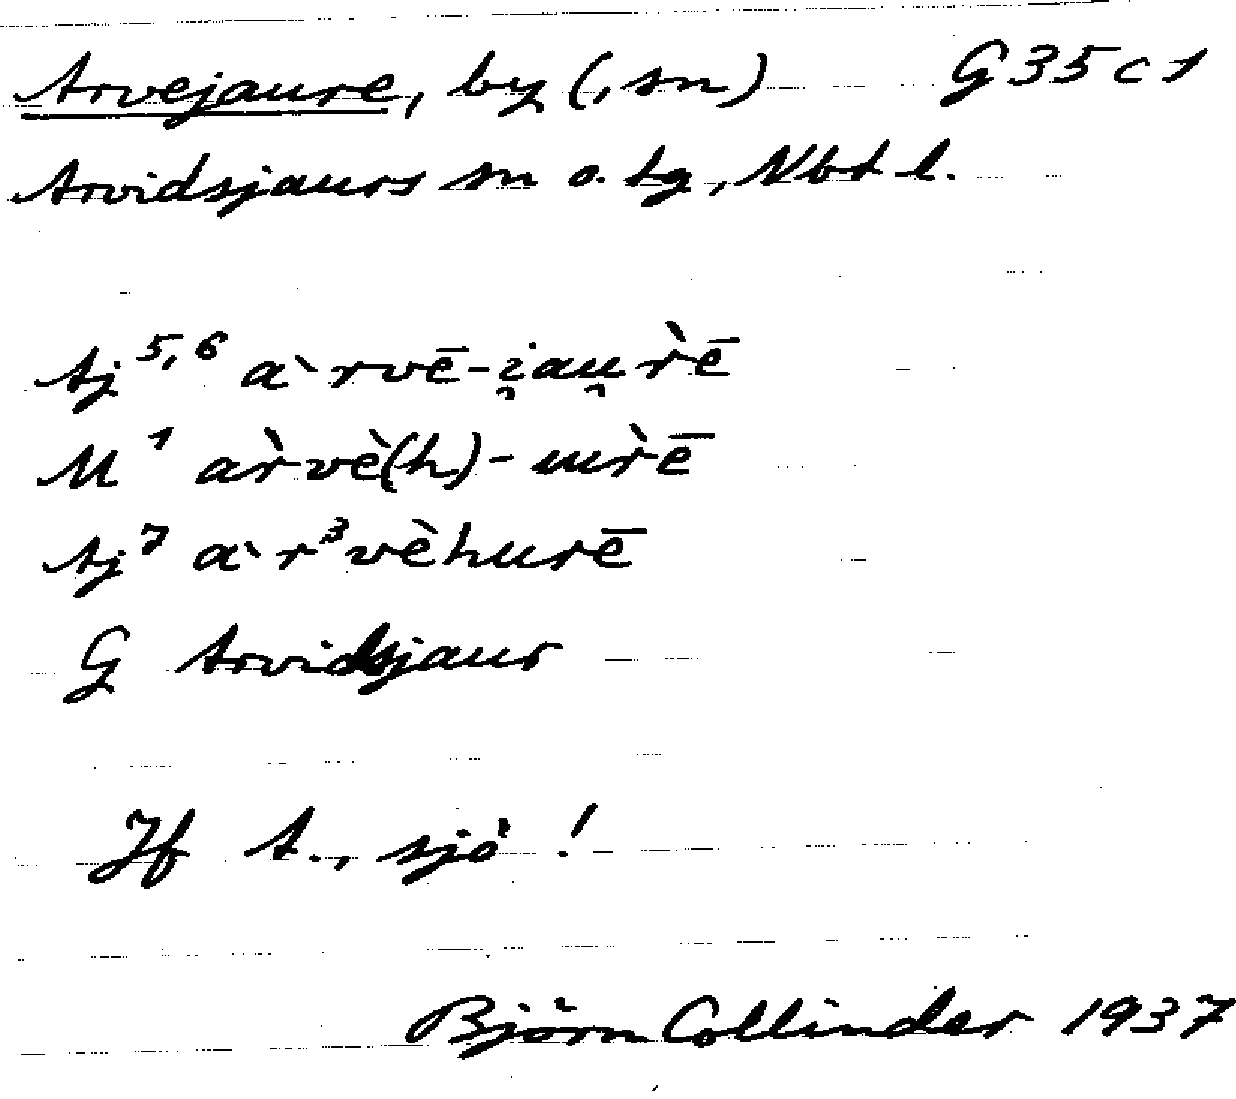 Arvejaure, by (, sn) G 35 c 1
Arvidsjaurs sn o. tg, Nbt l.
Aj 5, 6 a`rvē-i̯au̯r̀ē
M 1 ar̀vè(h)-ur̀ē
Aj 7 a`r³vèhurē
G Arvidsjaur
Jf A., sjö !
Björn Collinder 1937